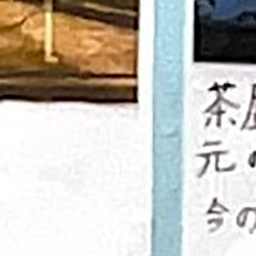 茶屋
元の
今の